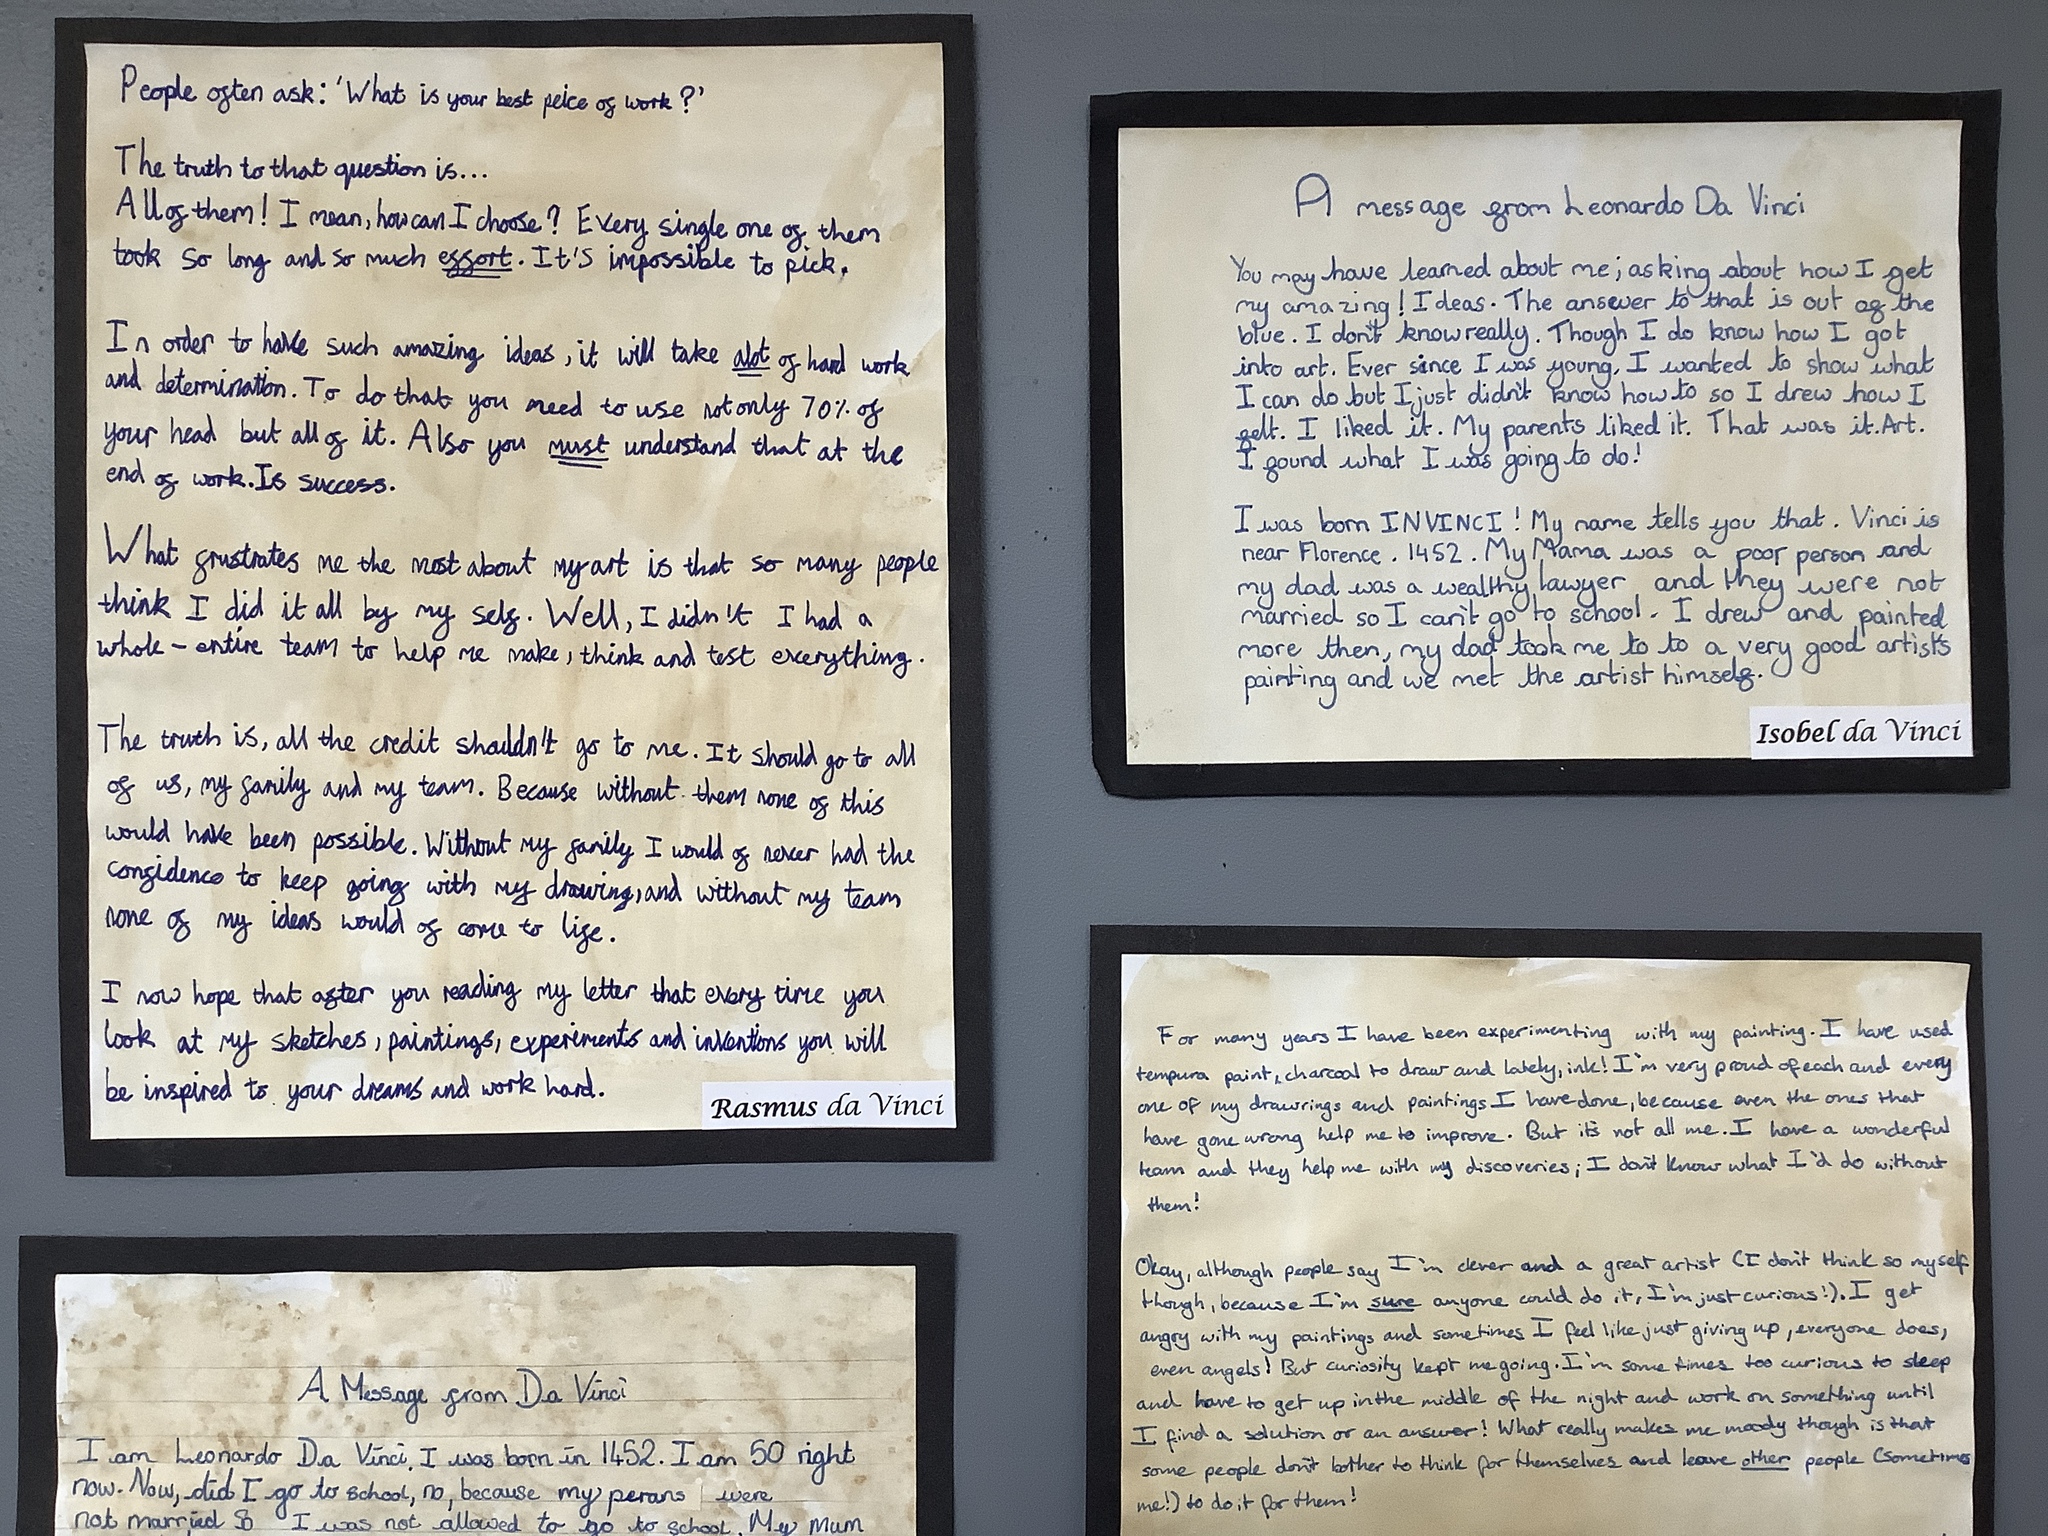 People often ask: 'What is your best peice of work?'
The truth to that question is...
All of them! I mean, how can I choose? Every single one of them
took so long and so much effort. It's impossible to pick.
In order to have such amazing ideas, it will take alot of hard work
and determination. To do that you need to use not only 70% of
your head but all of it. Also you must understand that at the
end of work. Is success.
What frustrates me the most about my art is that so many people
think I did it all by my self. Well, I didn't I had a
whole-entire team to help me make, think and test everything.
The truth is, all the credit shouldn't go to me. It should go to all
of us, my family and my team. Because without them none of this
would have been possible. Without my family I would of never had the
confidence to keep going with my drawing, and without my team
none of my ideas would of come to life.
I now hope that after you reading my letter that every time you
look at my sketches, paintings, experiments and inventions you will
be inspired to your dreams and work hard.
Rasmus da Vinci
A message from Leonardo Da Vinci
You may have learned about me; asking about how I get
my amazing! Ideas. The answer to that is out of the
blue. I don't know really. Though I do know how I got
into art. Ever since I was young, I wanted to show what
I can do but I just didn't know how to so I drew how I
felt. I liked it. My parents liked it. That was it. Art.
I found what I was going to do!
I was born INVINCI! My name tells you that. Vinci is
near Florence. 1452. My Mama was a poor person and
my dad was a wealthy lawyer and they were not
married so I can't go to school. I drew and painted
more then, my dad took me to to a very good artist's
painting and we met the artist himself.
Isobel da Vinci
A Message from Da Vinci
I am Leonardo Da Vinci. I was born in 1452. I am 50 right
now. Now, did I go to school, no, because my perans were
not married So I was not allowed to go to school. My mum
For many years I have been experimenting with my painting. I have used
tempura paint, charcoal to draw and lately, ink! I'm very proud of each and every
one of my drawrings and paintings I have done, because even the ones that
have gone wrong help me to improve. But it's not all me. I have a wonderful
team and they help me with my discoveries; I don't know what I'd do without
them!
Okay, although people say I'm clever and a great artist (I don't think so myself
though, because I'm sure anyone could do it, I'm just curious!). I get
angry with my paintings and sometimes I feel like just giving up, everyone does,
even angels! But curiosity kept me going. I'm some times too curious to sleep
and have to get up in the middle of the night and work on something until
I find a solution or an answer! What really makes me moody though is that
some people don't bother to think for themselves and leave other people (sometimes
me!) to do it for them!